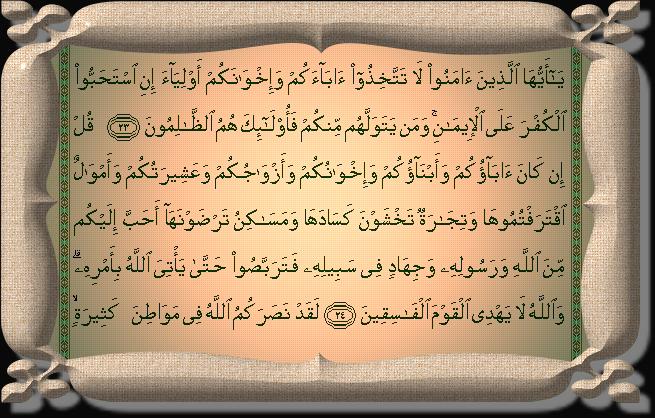 يَٰٓأَيُّهَا ٱلَّذِينَ ءَامَنُوا۟ لَا تَتَّخِذُوٓا۟ ءَابَآءَكُمْ وَإِخْوَٰنَكُمْ أَوْلِيَآءَ إِنِ ٱسْتَحَبُّوا۟
ٱلْكُفْرَ عَلَى ٱلْإِيمَٰنِ ۚ وَمَن يَتَوَلَّهُم مِّنكُمْ فَأُو۟لَٰٓئِكَ هُمُ ٱلظَّٰلِمُونَ ٢٣ قُلْ
إِن كَانَ ءَابَآؤُكُمْ وَأَبْنَآؤُكُمْ وَإِخْوَٰنُكُمْ وَأَزْوَٰجُكُمْ وَعَشِيرَتُكُمْ وَأَمْوَٰلٌ
ٱقْتَرَفْتُمُوهَا وَتِجَٰرَةٌ تَخْشَوْنَ كَسَادَهَا وَمَسَٰكِنُ تَرْضَوْنَهَآ أَحَبَّ إِلَيْكُم
مِّنَ ٱللَّهِ وَرَسُولِهِۦ وَجِهَادٍ فِى سَبِيلِهِۦ فَتَرَبَّصُوا۟ حَتَّىٰ يَأْتِىَ ٱللَّهُ بِأَمْرِهِۦ ۗ
وَٱللَّهُ لَا يَهْدِى ٱلْقَوْمَ ٱلْفَٰسِقِينَ ٢٤ لَقَدْ نَصَرَكُمُ ٱللَّهُ فِى مَوَاطِنَ كَثِيرَةٍ ۙ